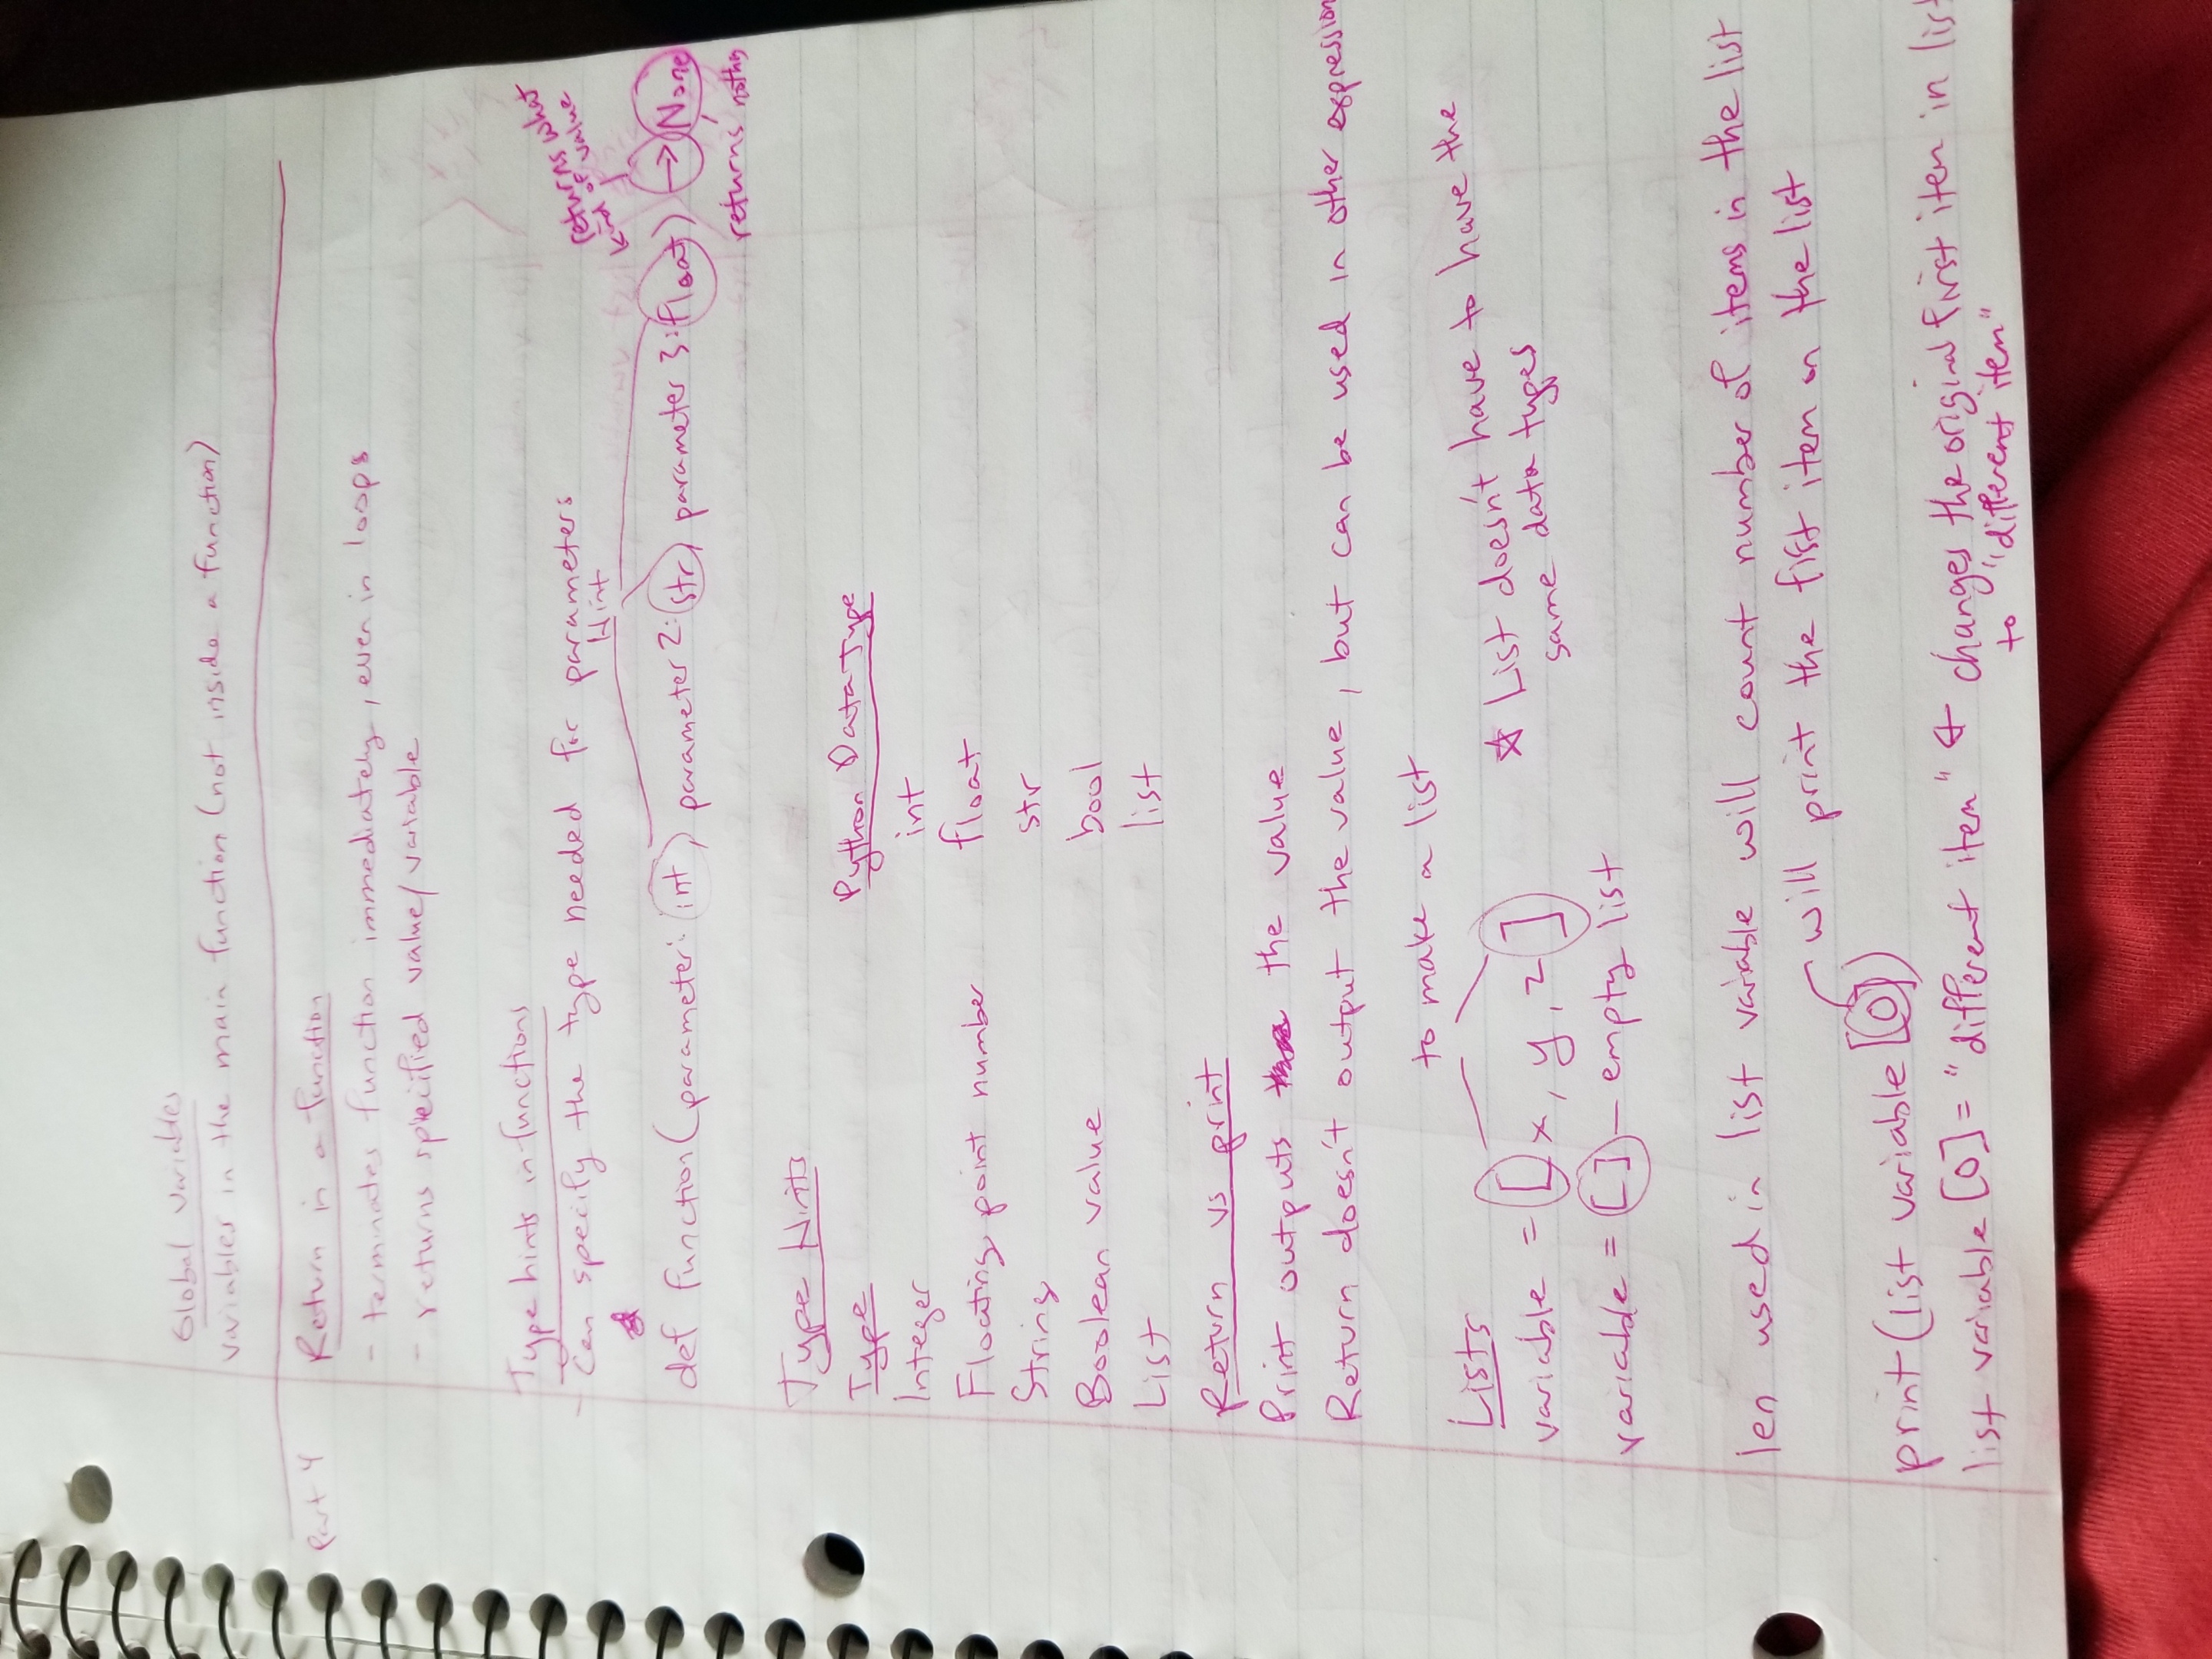 Global variables
variables in the main function (not inside a function)
Part 4
Return in a function
- terminates function immediately, even in loops
- returns specified value/variable
Type hints in functions
- Can specify the type needed for parameters
Hint
returns what
kind of value
def function(parameter: int, parameter 2: str, parameter 3: float) → None
returns nothing
Type Hints
Type Python Data Type
Integer int
Floating point number float
String str
Boolean value bool
List list
Return vs print
Print outputs the value
Return doesn't output the value, but can be used in other expression
to make a list
Lists
variable = [x, y, z]
☆ List doesn't have to have the
same data types
variable = [] — empty list
len used in list variable will count number of items in the list
will print the fist item on the list
print(list variable [0])
list variable [0] = "different item" ← changes the original first item in list
to "different item"